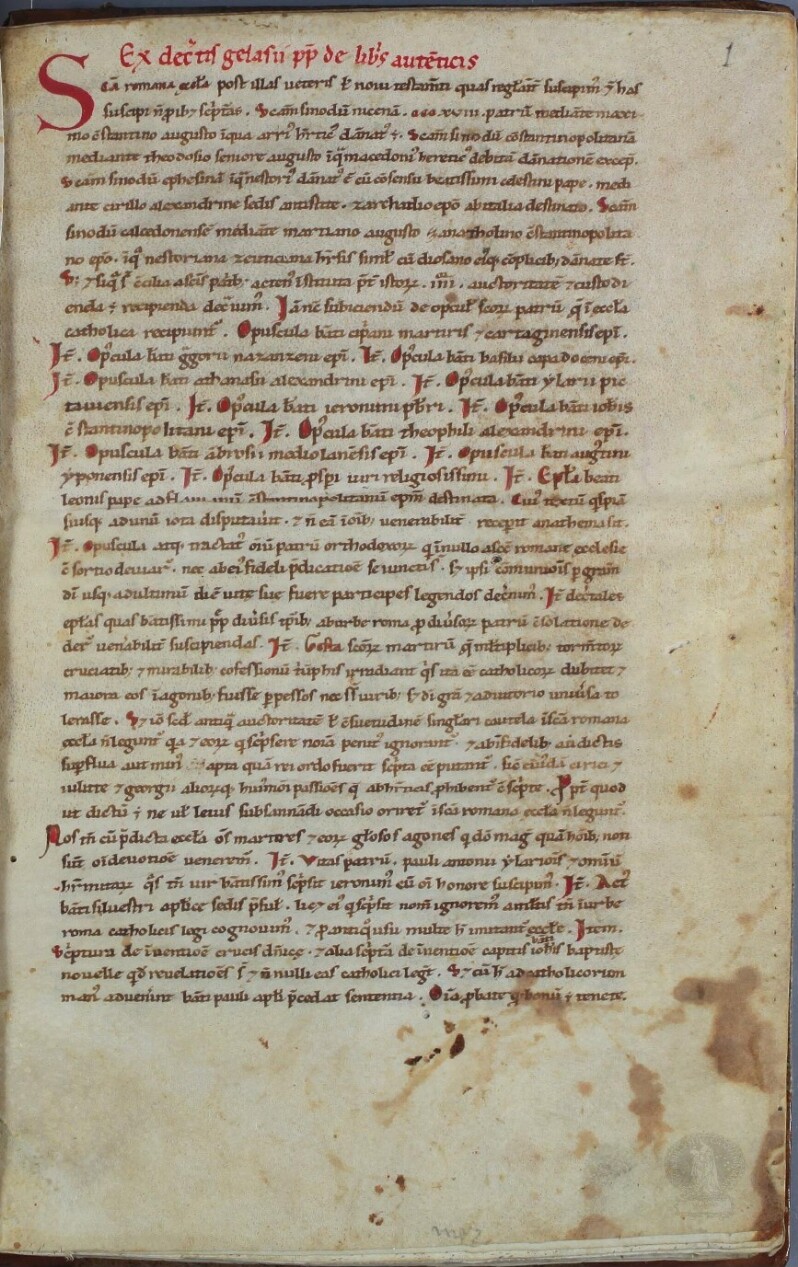 Ex dec̄tis gelasii pp̄ de lib̾s autēticis
1
Scā romana ęccl̄a post illas ueteris ł noui testam̄ti quas regl̄arit̄ suscipim᷒ 7 has
suscipi n̄ ꝓhib; sc̾ptas. Scam sinodū nicenā. ccc xviii. patrū mediante maxi
mo ↄ̄stantino augusto ī qua arri᷒ h̾rtic᷒ dānat᷒ ē. Scam sinodū cōstantinopolitanā
mediante theodosio seniore augusto ī q̄ macedoni᷒ heretic᷒ debitā dānationē excep̄.
Scam sinodū ephesinā ī q̄ nestori᷒ dānat᷒ ē cū cōsensu beatissimi celestini pape. medi
ante cirillo alexandrine sedis antistite. 7 archadio ep̄o ab italia destinato. Scam
sinodū calcedonensē mediāte martiano augusto 7 anatholino ↄ̄stantinopolita
no ep̄o. ī q̄ nestoriana 7 euticiana h̾rsis simł cū diosano ei᷒q; cōplicib; dānate st̄.
S; 7 siq̄ st̄ ↄ̄cilia a sc̄is pat̾b; actenꝰ īstituta p̄t istoꝝ. iiii. auctoritatē 7 custodi
enda 7 recipienda dec̾uim᷒. Iā nc̄ subiciendū de opuscul᷒ sc̄oꝝ patrū q̄ ī ęccl̄a
catholica recipiunt᷒. Opuscula bāti cip̾ani martiris 7 cartaginensis ep̄i.
It̄. Op᷒cula bāti g̾gorii nazanzeni ep̄i. It̄. Op᷒cula bāti basilii capadoceni ep̄i.
It̄. Opuscula bāti athanasii alexandrini ep̄i. It̄. Op᷒cula bāti ylarii pic
tauiensis ep̄i. It̄. Op᷒cula bāti ieronimi p̄bri. It̄. Op᷒cula bāti ioh̄is
ↄ̄stantinopolitani ep̄i. It̄. Op᷒cula bāti theophili alexandrini ep̄i.
It̄. Opuscula bāti ābrosii mediolanēsis ep̄i. It̄. Opuscula bāti aug᷒tini
yponensis ep̄i. It̄. Op᷒cula bāti ꝓsp̄i uiri religiosissimi. It̄. Epl̄a beati
leonis pape ad flauianū ↄ̄stantinopolitanū ep̄m destinata. Cui᷒ textū q̾spiā
si usq; ad unū iota disputauit. 7 n̄ eā ī oīb; uenerabilit̄ receperit anathema sit.
It̄. Opuscula atq; tractat᷒ oīu patrū orthodoxoꝝ q̾ ī nullo a sc̄e romane ecclesie
ↄ̄sortio deuiar᷒. nec ab ei᷒ fidei p̄dicatiōe seiuncti st̄. s; ipsi᷒ cōmuniōis p g̾am
dī usq; ad ultimū diē uite sue fuere participes legendos dec̾nim᷒. It̄ dec̾tales
epl̄as quas bātissimi pp̄ diu̾sis tp̄ib; ab urbe roma ꝓ diu̾soꝝ patrū ↄ̄solatione de
der᷒ uen̾abilit̄ suscipiendas. It̄. Gesta sc̄oꝝ martirū q̄ m̄ltiplicib; torm̄toꝝ
cruciatib; 7 mirabilib; cōfessionū t̾ūphis irradiant q̾s ita ēē catholicoꝝ dubitet 7
maiora eos ī agonib; fuisse ꝑpessos nec suis uirib; s; dī grā 7 adiutorio uniu̾sa to
lerasse. S; iō scd̄ antiq̄ auctoritatē ł ↄ̄suetudinē singl̄ari cautela ī scā romana
ęccl̄a n̄ legunt᷒ q̾a 7 eoꝝ q̾ sc̾psere noīa penit᷒ ignorant᷒. 7 ab īfidelib; aut idiotis
suꝑflua aut min᷒ apta quā rei ordo fuerit sc̾pta ēē putant᷒. sic cuiusdā cirici 7
iulitte 7 georgii alioꝝq; hui᷒modi passiones q̄ ab h̾ticis ꝓhibent᷒ ↄ̄sc̾pte. Ppt̄ quod
ut dictū ē ne uł leuis subsannādi occasio oriret᷒ ī scā romana ęccl̄a n̄ legunt᷒.
Nos tn̄ cū p̄dicta ęccl̄a om̄s martires 7 eoꝝ gl̄osos agones q̾ dō mag᷒ quā hōib; noti
sūt oī deuotiōe uenerem᷒. It̄. Vitas patrū. pauli antonii ylariōis 7 omniū
h̾mitaꝝ q̾s tn̄ uir bātissim᷒ sc̾psit ieronim᷒ cū oī honore suscipim᷒. It̄. Act᷒
bāti siluestri ap̄lice sedis p̄sul᷒. licet ei᷒ q̾ sc̾psit nom̄ ignorem᷒ a multis tn̄ ī urbe
roma catholicis legi cognouim᷒. 7 ꝓ antiq̾ usu multe h̄ imitant᷒ ęccl̄e. Item.
Sc̾ptura de īuentiōe crucis dn̄ice. 7 alia sc̾pta de īuentiōe capitis bāti ioh̄is baptiste
nouelle qd̄ reuelatiōes st̄ 7 n̄nulli eas catholici legt̄. S; cū h̄ ad catholicorum
man᷒ aduenerint bāti pauli ap̄li p̄cedat sententia. Oīa ꝓbate q̾ bonū ē tenete.